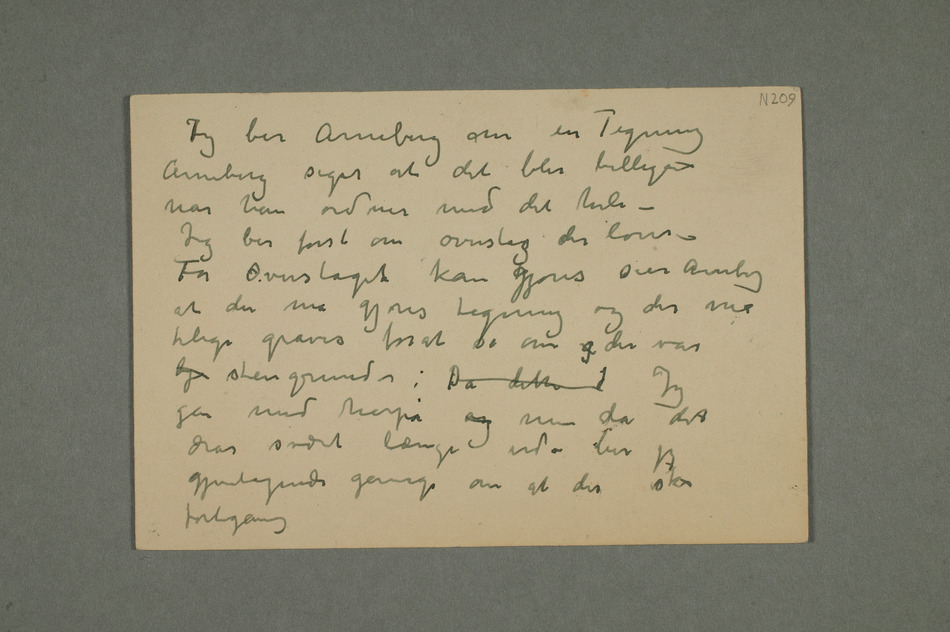 N 209
Jeg ber Arneberg om en Tegning
Arneberg siger at det blir billigere
når han ordner med det hele –
Jeg ber først om overslag der loves –
Før Overslaget kan gjøres sier Arneberg
at der må gjøres tegning og der må
tillige graves forat se om der var
stengrunder : Da dette Jeg
går med herpå og men da det
drar svært længe ud – ber jeg
gjentagende gange om at der ska
fortgang